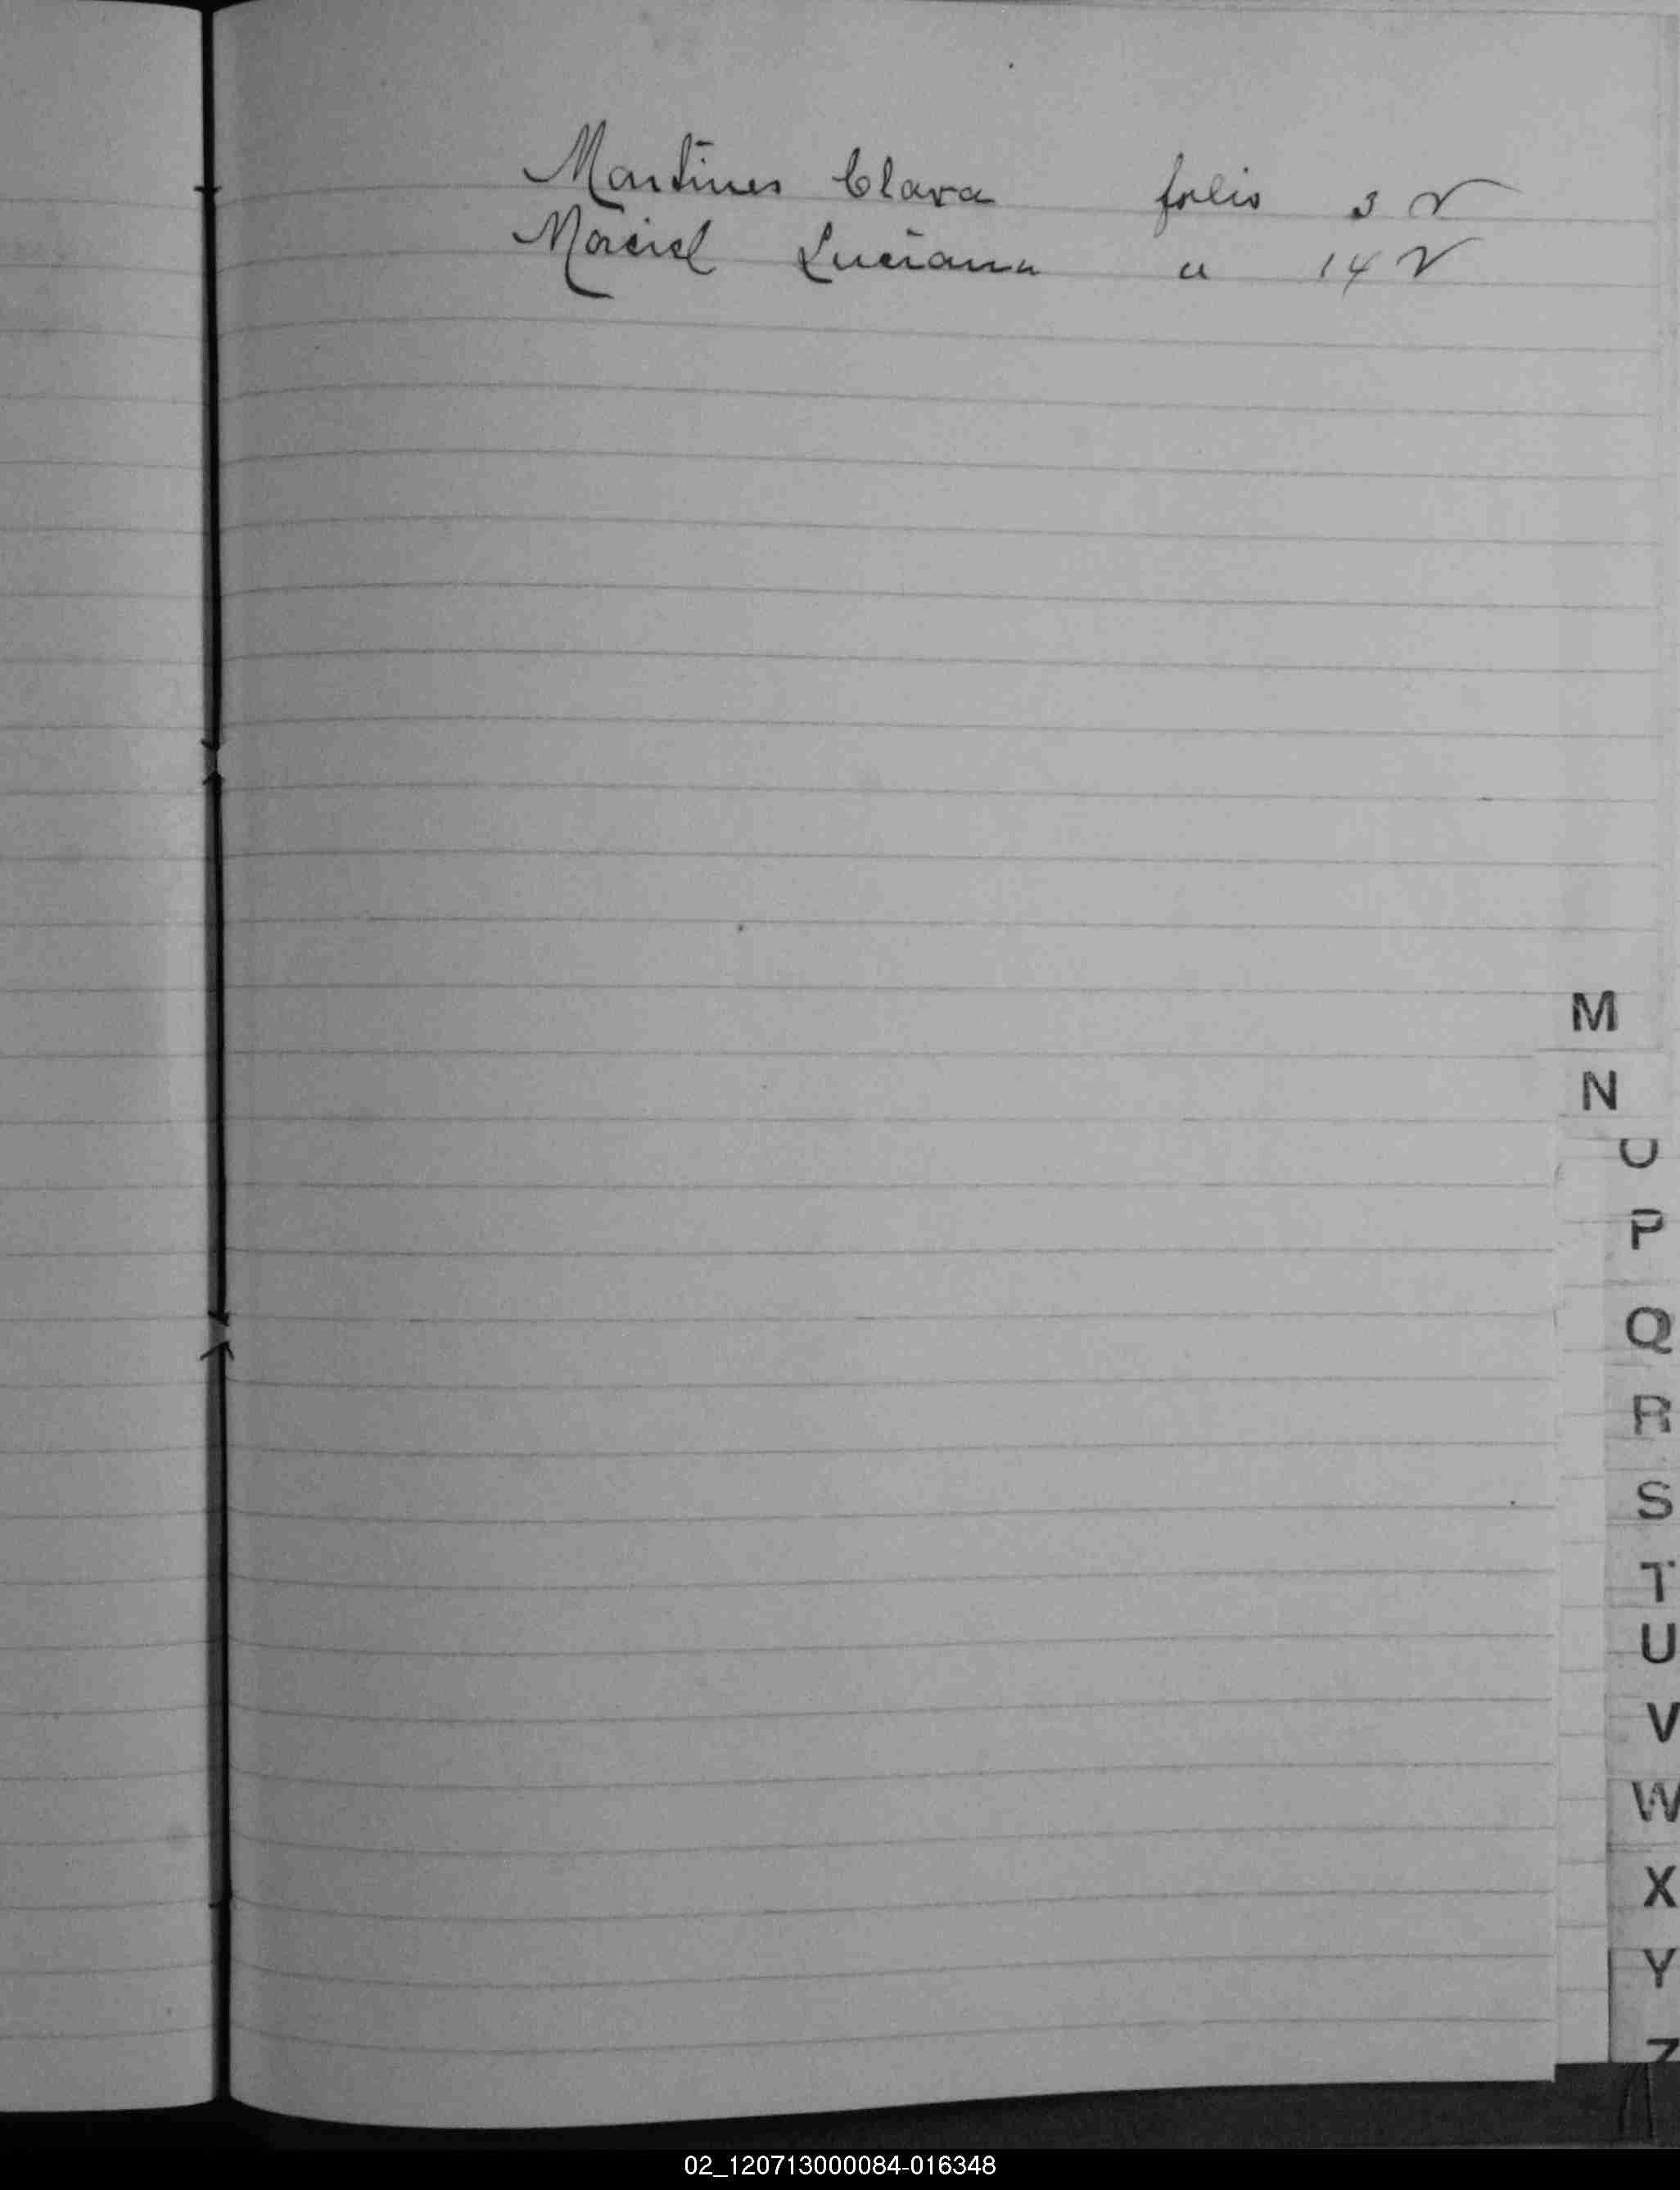 Martines Clara folio 3 v
Maciel Luciana " 14 v
M
N
O
P
Q
R
S
T
U
V
W
X
Y
Z
02_120713000084-016348